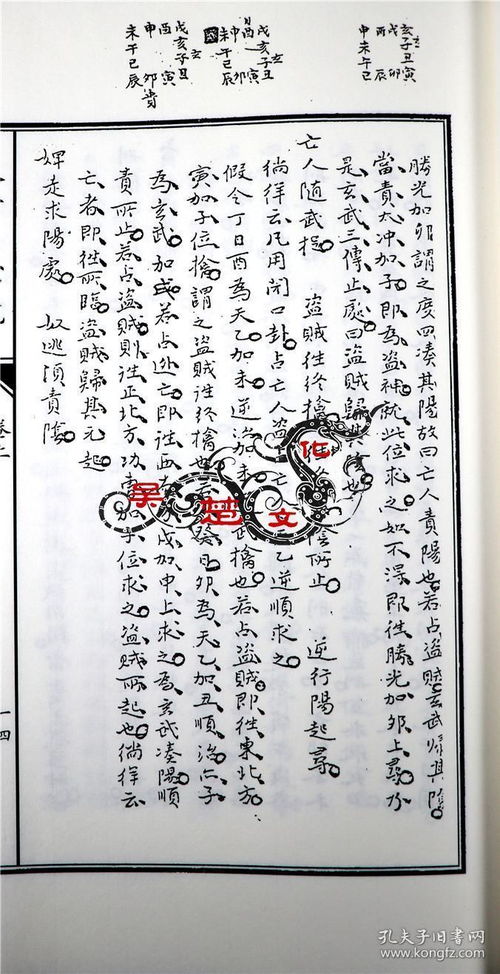 亥子丑寅
戌 卯
酉 辰
申未午巳
戌亥子丑
酉 寅
申 卯
未午巳辰
戌亥子丑
酉 寅
申 卯 貴
未午巳辰
勝光加卯謂之度四湊其陽故曰亡人責陽也若占盜賊玄武歸其陰
當責太冲加子即為盜神就此位求之如不得即往勝光加卯上尋
是玄武三傳止處曰盜賊歸其陰也
亡人隨武捉 盜賊往終擒 陰所止 逆行陽起尋
徜徉云凡用閉口卦占亡人盜 乙逆順求之
假令丁日酉為天乙加未逆治加未 武擒也若占盜賊即往東北方
寅加子位擒謂之盜賊往終擒也 癸日卯為天乙加丑順治 子
為玄武加戌若占逃亡即往西 戌加申上求之為玄武湊陽順
責所止若占盜賊則往正北方功 加子位求之盜賊所起也徜徉云
亡者即往所臨盜賊歸其元起
婢走求陽處 奴逃須責陰
卷上
一四
吴楚文化
孔夫子旧书网
www.kongfz.com